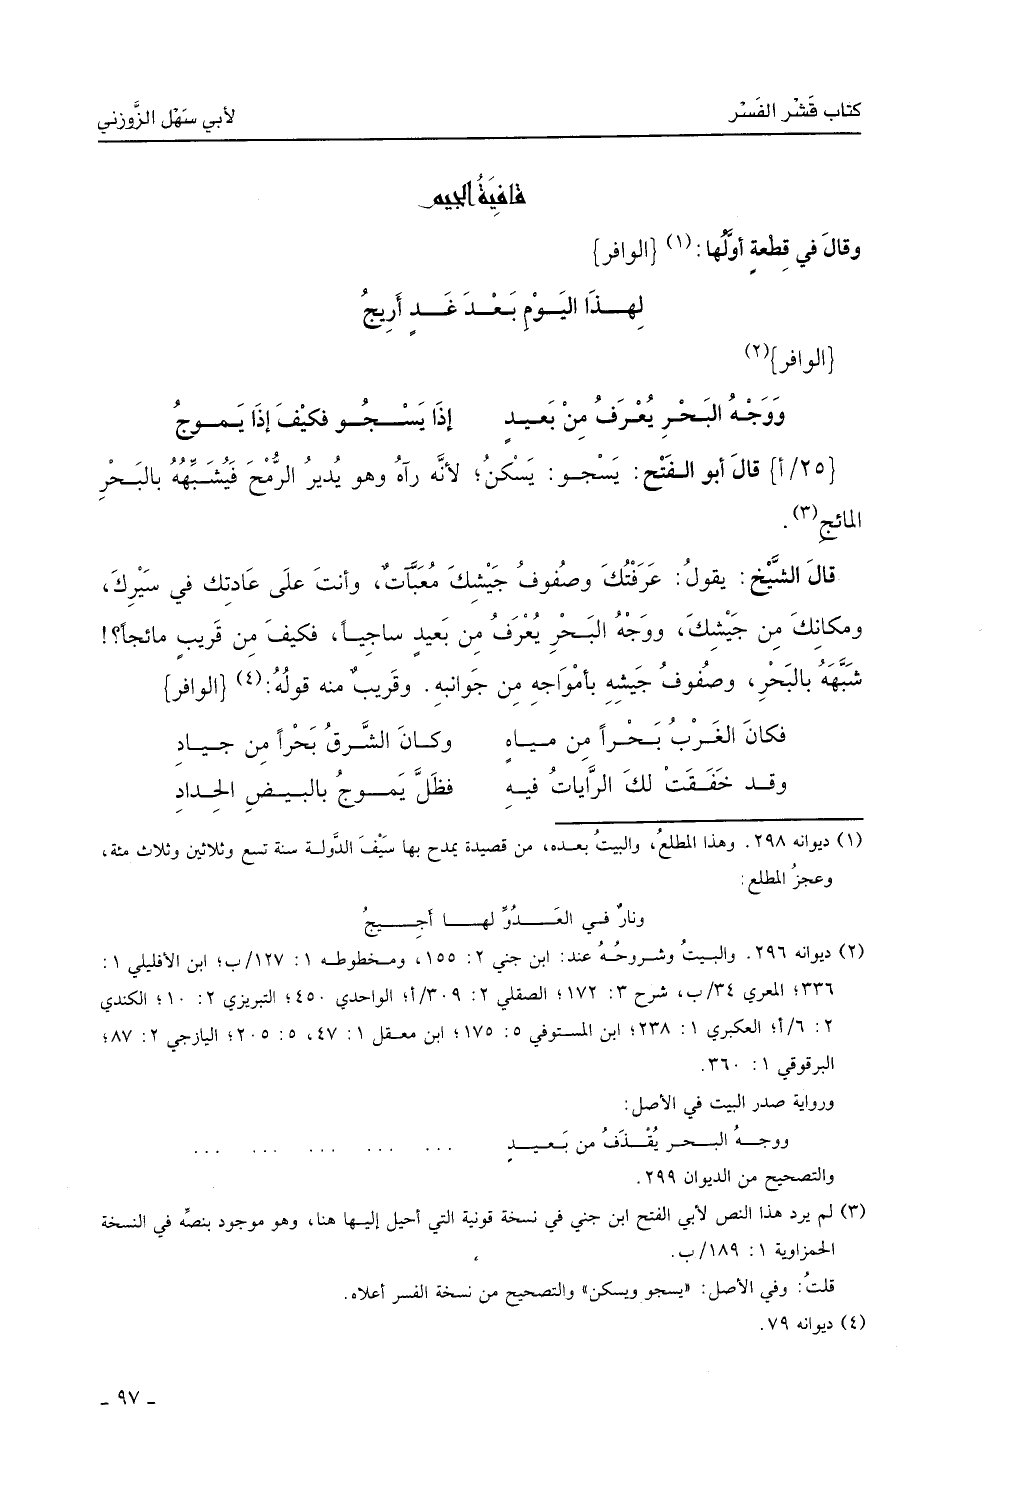 كتاب قَشْر الفَسْر لأبي سَهْل الزَّوزني
قافِيَةُ الجِيم
وقالَ في قِطْعةٍ أوَّلُها: (١) {الوافر}
لِهـذَا اليَـوْمِ بَـعْـدَ غَـدٍ أَرِيجُ
{الوافر}(٢)
وَوَجْـهُ البَـحْرِ يُعْـرَفُ مِنْ بَعِيـدٍ إذَا يَسْـجُـو فكيْفَ إذَا يَـمـوجُ
{٢٥/أ} قالَ أبو الـفَتْح: يَسْجـو: يَسْكنُ؛ لأنَّه رآهُ وهو يُديرُ الرُّمْحَ فَيُشَبِّهُهُ بالبَحْرِ
المائجِ(٣).
قالَ الشَّيْخ: يقولُ: عَرَفْتُكَ وصُفوفُ جَيْشِكَ مُعَبَّآتٌ، وأنتَ علَى عَادتِك في سَيْرِكَ،
ومكانِكَ مِن جَيْشِكَ، ووَجْهُ البَـحْرِ يُعْرَفُ مِن بَعِيدٍ ساجِيـاً، فكيفَ مِن قَريبٍ مائجاً؟!
شَبَّهَهُ بالبَحْرِ، وصُفوفُ جَيشِهِ بأمْوَاجِهِ مِن جَوانبِهِ. وقَريبٌ منه قولُهُ:(٤) {الوافر}
فكانَ الغَـرْبُ بَـحْـراً مِن ميـاهٍ وكـانَ الشَّرقُ بَحْراً مِن جيـادِ
وقـد خَفَـقَتْ لكَ الرَّاياتُ فيـهِ فظَلَّ يَمـوجُ بالبـيـضِ الحِدادِ
(١) ديوانه ٢٩٨. وهذا المطلعُ، والبيتُ بعده، من قصيدة يمدح بها سَيْفَ الدَّولـة سنة تسع وثلاثين وثلاث مئة،
وعجزُ المطلع:
ونارٌ فـي العَـدُوِّ لهـا أَجِـيـجُ
(٢) ديوانه ٢٩٦. والبـيتُ وشـروحُـهُ عند: ابن جني ٢: ١٥٥، ومـخطوطـه ١: ١٢٧/ب؛ ابن الأفليلي ١:
٣٣٦؛ المعري ٣٤/ب، شرح ٣: ١٧٢؛ الصقلي ٢: ٣٠٩/أ؛ الواحدي ٤٥٠؛ التبريزي ٢: ١٠؛ الكندي
٢: ٦/أ؛ العكبري ١: ٢٣٨؛ ابن المستوفي ٥: ١٧٥؛ ابن معـقل ١: ٤٧، ٥: ٢٠٥؛ اليازجي ٢: ٨٧؛
البرقوقي ١: ٣٦٠.
ورواية صدر البيت في الأصل:
ووجـهُ البـحـر يُقْـذَفُ من بَـعيـدٍ ... ... ... ... ...
والتصحيح من الديوان ٢٩٩.
(٣) لم يرد هذا النص لأبي الفتح ابن جني في نسخة قونية التي أحيل إليـها هنا، وهو موجود بنصِّه في النسخة
الحمزاوية ١: ١٨٩/ب.
قلتُ: وفي الأصل: «يسجو ويسكن» والتصحيح من نسخة الفسر أعلاه.
(٤) ديوانه ٧٩.
ـ ٩٧ ـ